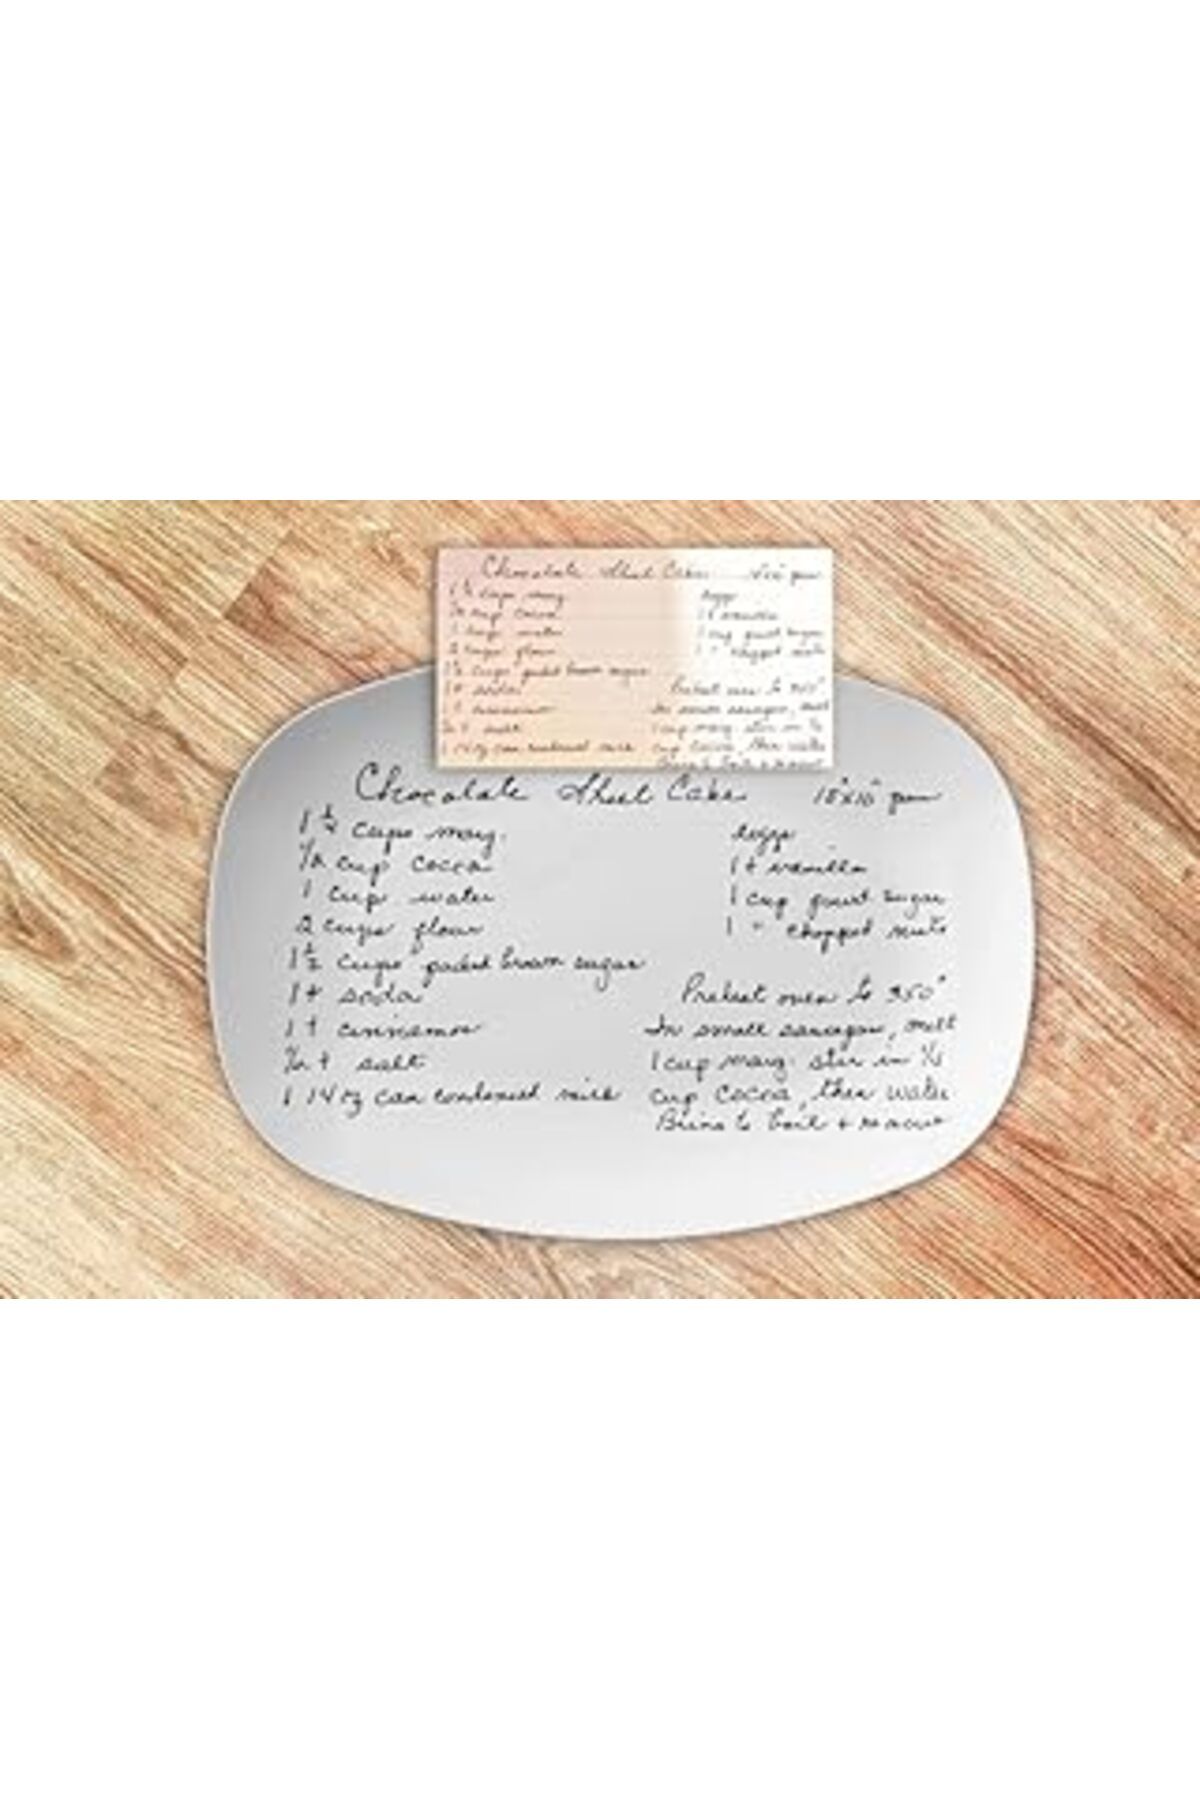 Chocolate Sheet Cake
1 1/4 cups marg.
1/2 cup cocoa
1 cup water
2 cups flour
1 1/2 cups packed brown sugar
1 t soda
1 t cinnamon
1/2 t salt
1 14 oz can condensed milk
eggs
1 t vanilla
1 cup powd sugar
1 " chopped nuts
Preheat oven to 350°
In small saucepan, melt
1 cup marg. stir in 1/2
cup cocoa, then water
Chocolate Sheet Cake 15"x10" pan
1 1/4 cups marg.
1/2 cup cocoa
1 cup water
2 cups flour
1 1/2 cups packed brown sugar
1 t soda
1 t cinnamon
1/2 t salt
1 14 oz can condensed milk
eggs
1 t vanilla
1 cup powd sugar
1 " chopped nuts
Preheat oven to 350°
In small saucepan, melt
1 cup marg. stir in
cup cocoa, then water
Bring to boil + remove